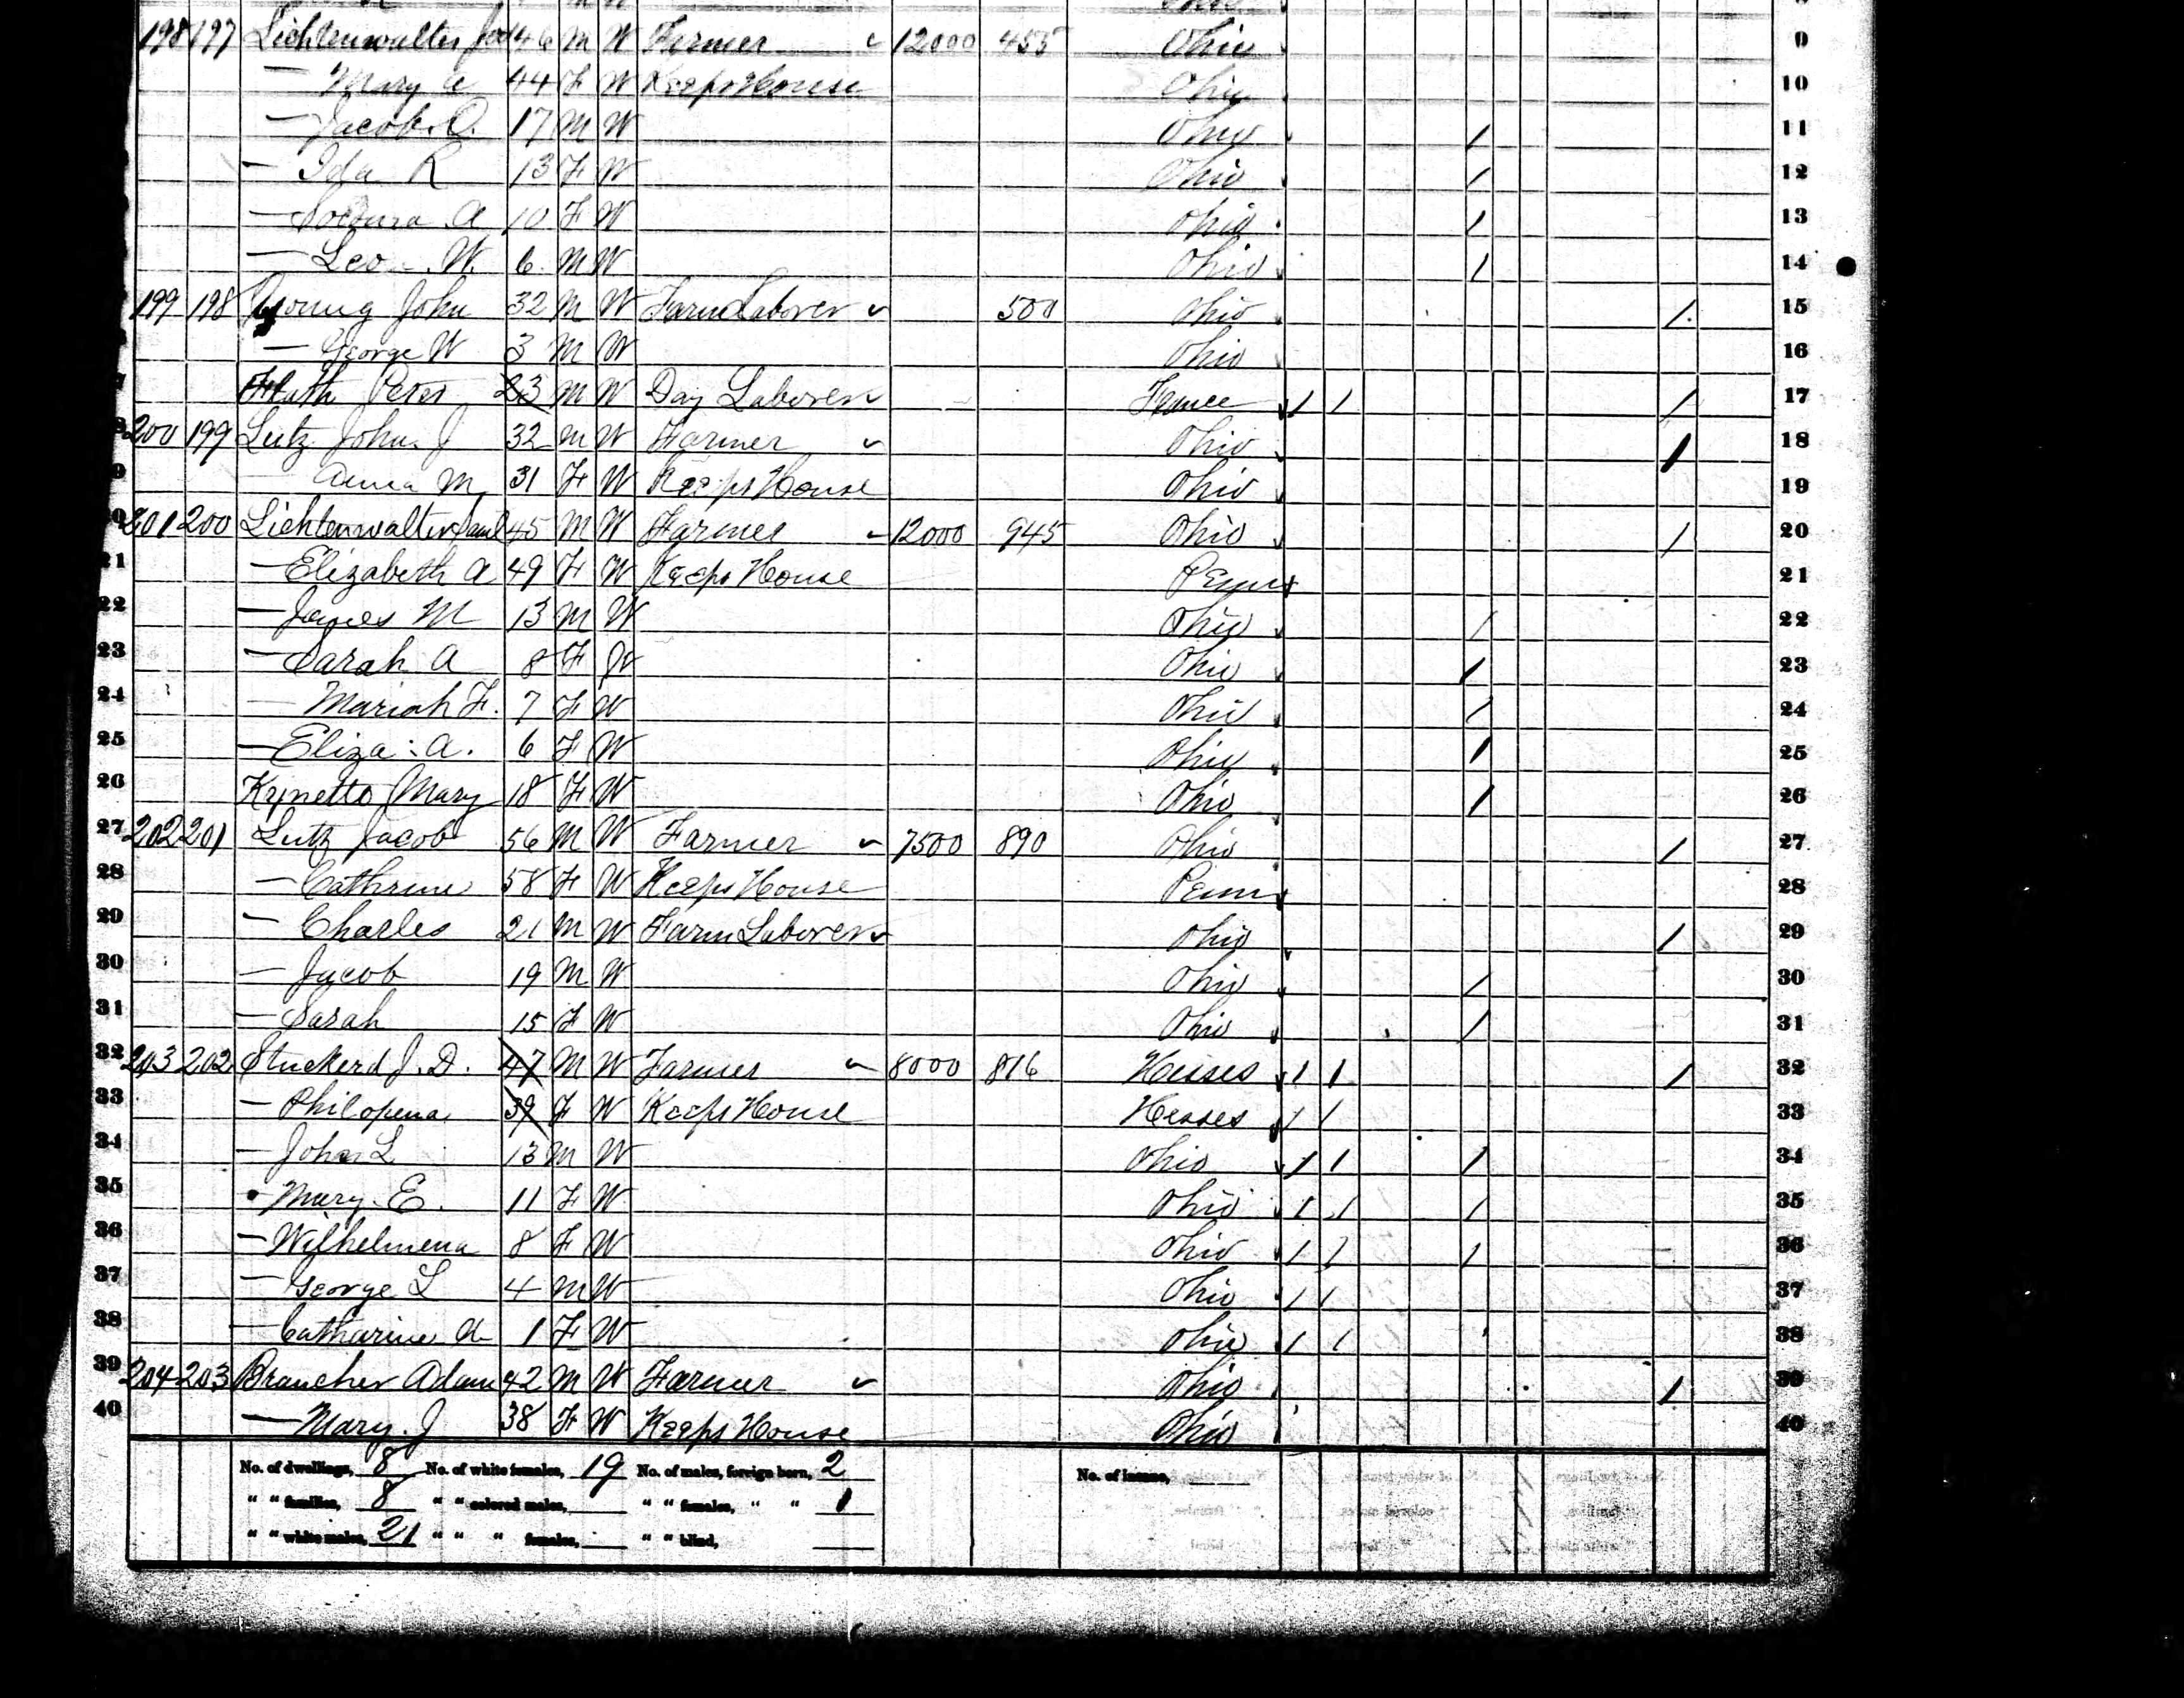 198 197 Lichtenwalter 46 M W Farmer 12000 455 Ohio 9
— Mary A 44 F W Keeps House Ohio 10
— Jacob O. 17 M W Ohio 1 11
— Ida R 13 F W Ohio 1 12
— A 10 F W Ohio 1 13
— Leo W. 6 M W Ohio 1 14
199 198 Young John 32 M W Farm Laborer 500 Ohio 1 15
— George W 3 M W Ohio 16
Peter 23 M W Day Laborer France 1 1 1 17
200 199 Lutz John J 32 M W Farmer Ohio 1 18
— Anna M 31 F W Keeps House Ohio 19
201 200 Lichtenwalter Saml 45 M W Farmer 12000 945 Ohio 1 20
21 — Elizabeth A 49 F W Keeps House Penn 21
22 — James M 13 M W Ohio 1 22
23 — Sarah A 8 F W Ohio 1 23
24 — Mariah F. 7 F W Ohio 1 24
25 — Eliza A. 6 F W Ohio 1 25
26 Mary 18 F W Ohio 1 26
27 202 201 Lutz Jacob 56 M W Farmer 7500 890 Ohio 1 27
28 — Cathrine 58 F W Keeps House Penn 28
29 — Charles 21 M W Farm Laborer Ohio 1 29
30 — Jacob 19 M W Ohio 1 30
31 — Sarah 15 F W Ohio 1 31
32 203 202 Stuckerd J. D. 47 M W Farmer 8000 816 Hesses 1 1 1 32
33 — Philopena 39 F W Keeps House Hesses 1 1 33
34 — John L 13 M W Ohio 1 1 1 34
35 Mary E. 11 F W Ohio 1 1 1 35
36 — Wilhelmena 8 F W Ohio 1 1 1 36
37 — George L 4 M W Ohio 1 1 37
38 — Catharine 1 F W Ohio 1 1 38
39 204 203 Braucher Adam 42 M W Farmer Ohio 1 39
40 — Mary. J 38 F W Keeps House Ohio 40
No. of dwellings, 8 No. of white females, 19 No. of males, foreign born, 2 No. of insane,
" " families, 8 " " colored males, " " females, " " 1
" " white males, 21 " " " females, " " blind,